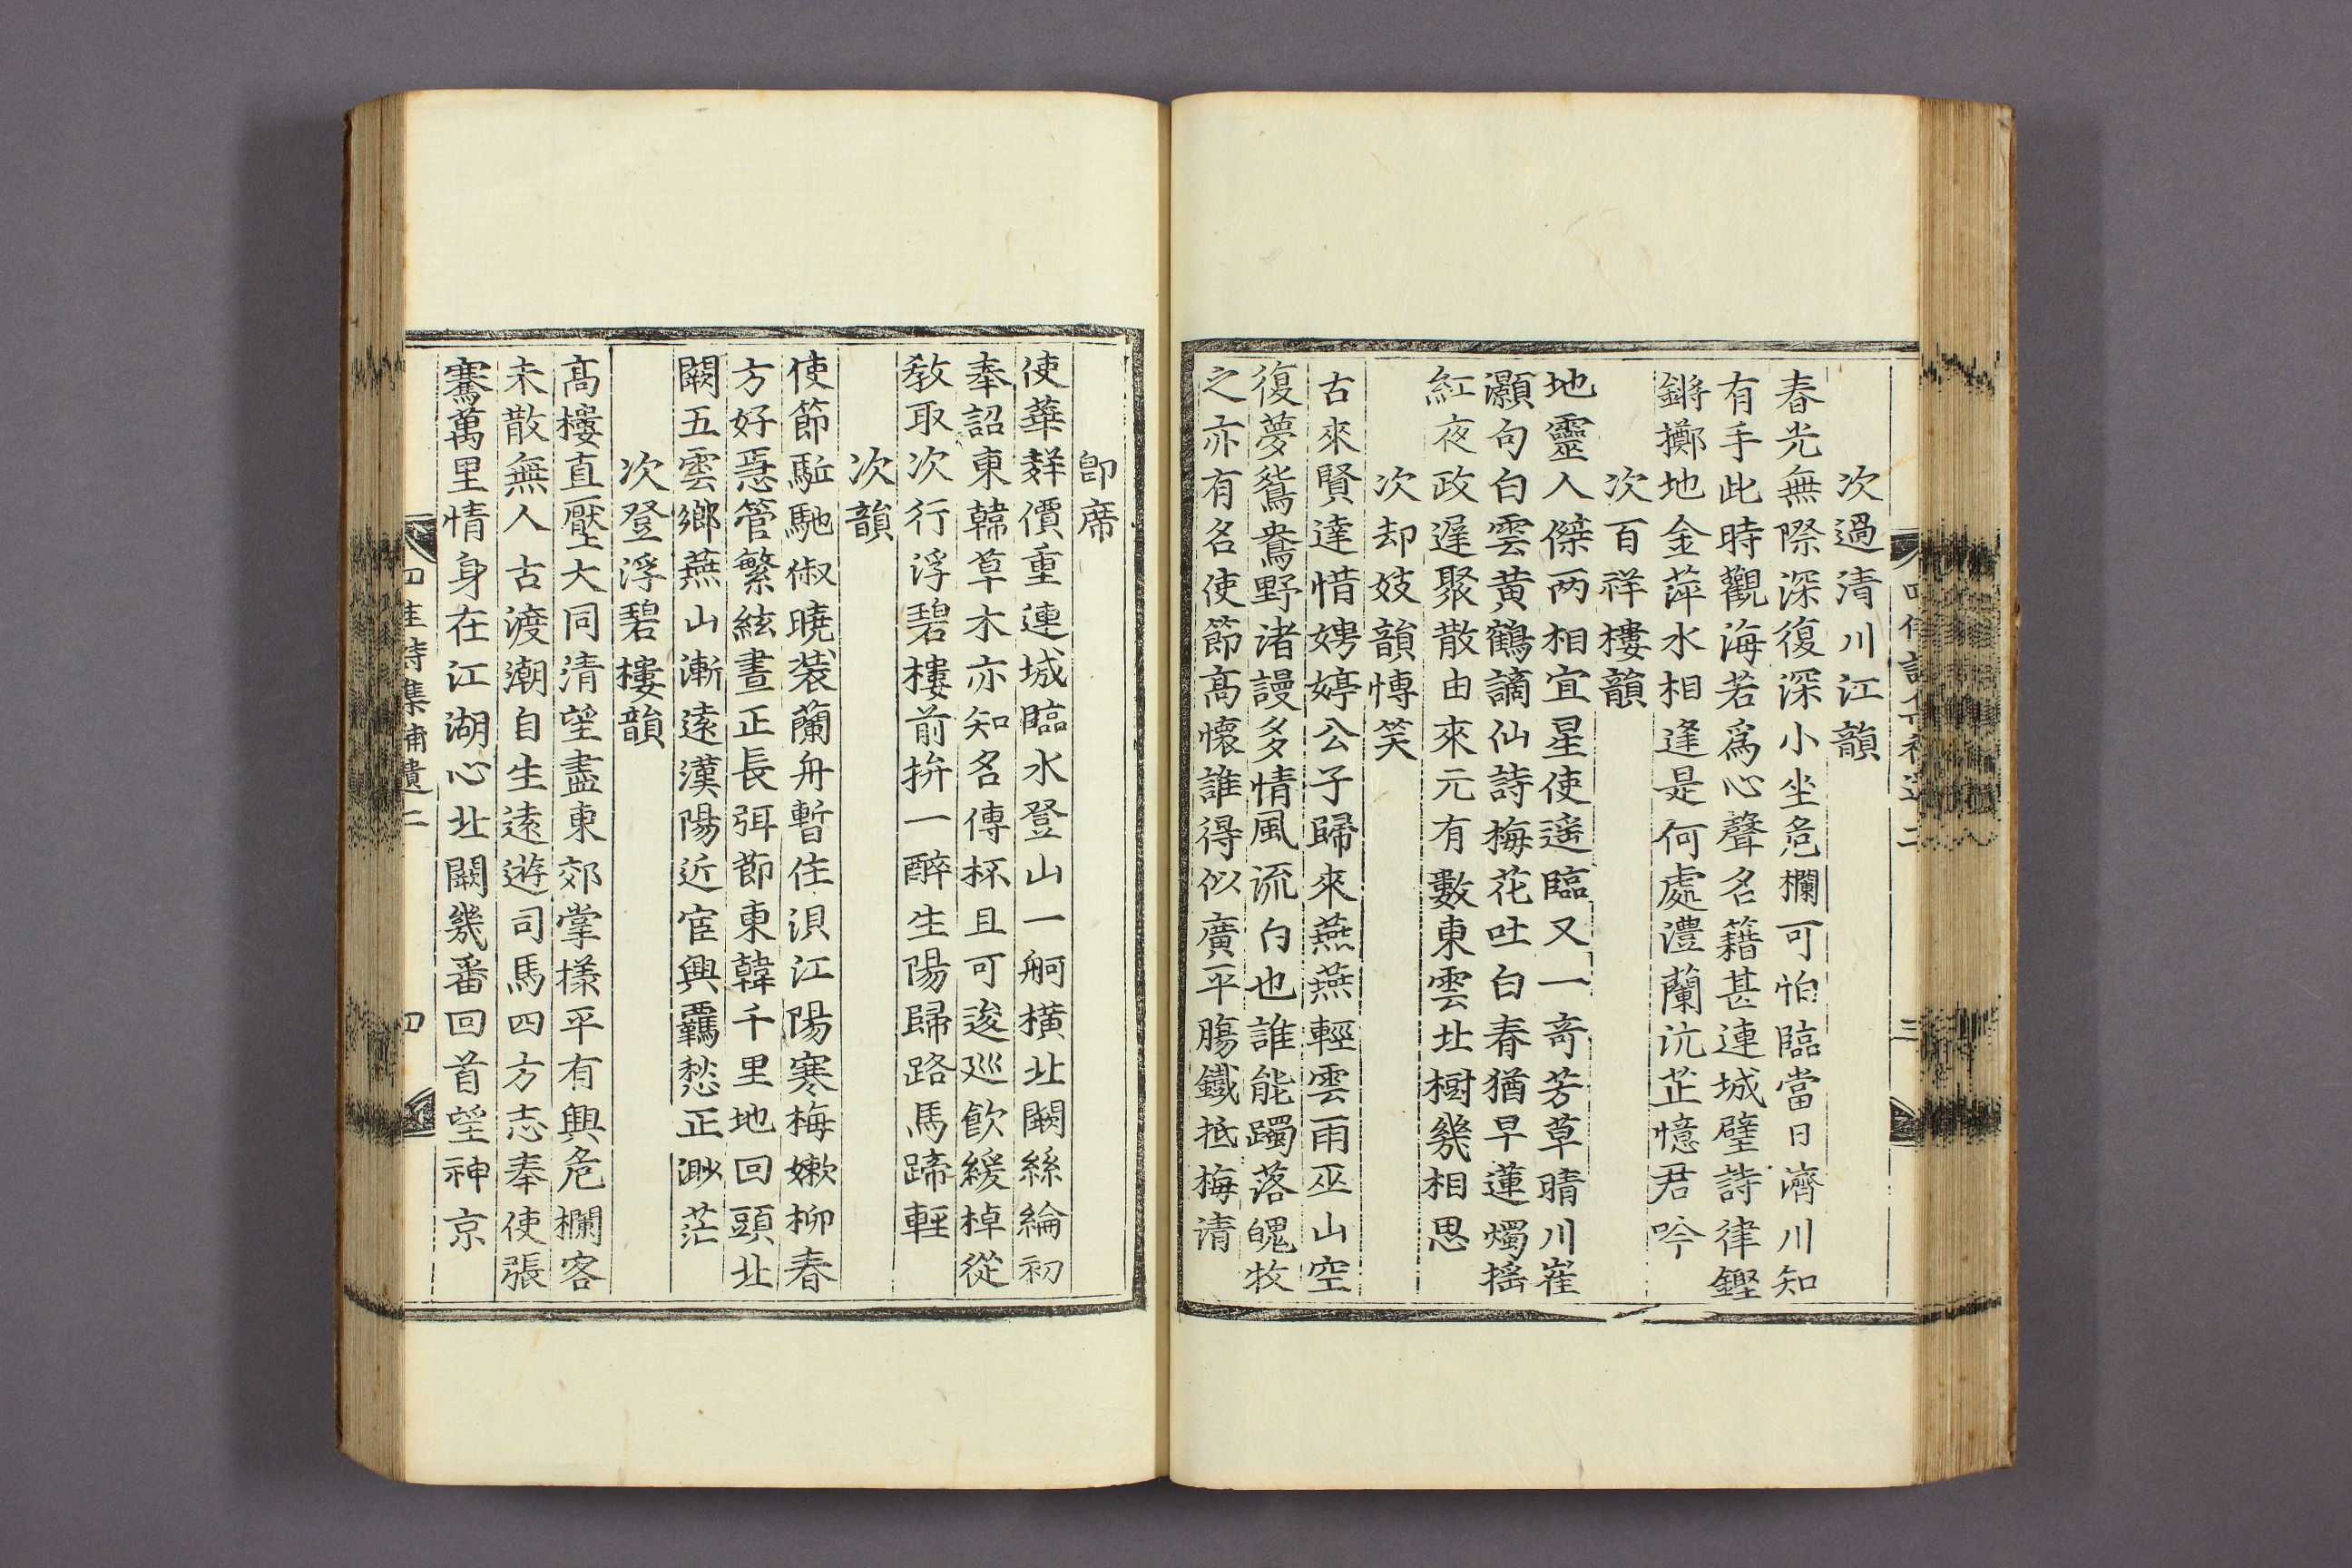 次過清川江韻
春光無際深復深小坐危欄可怕臨當日濟川知
有手此時觀海若爲心聲名籍甚連城璧詩律鏗
鏘擲地金萍水相逢是何處澧蘭沅芷憶君吟
次百祥樓韻
地靈人傑两相宜星使遥臨又一竒芳草晴川崔
灝句白雲黄鶴謫仙詩梅花吐白春猶早蓮燭揺
紅夜政遲聚散由來元有數東雲北樹幾相思
次却妓韻愽笑
古來賢達惜娉婷公子歸來燕燕輕雲雨巫山空
復夢鴛鴦野渚謾多情風流白也誰能躅落魄牧
之亦有名使節高懷誰得似廣平膓鐵抵梅清
卽席
使華辝價重連城臨水登山一舸横北闕絲綸初
奉詔東韓草木亦知名傳杯且可逡廵飮緩棹從
教取次行浮碧樓前拚一醉生陽歸路馬蹄輕
次韻
使節駈馳俶曉裝蘭舟暫住浿江陽寒梅嫩柳春
方好急管繁絃晝正長弭節東韓千里地回頭北
闕五雲鄉燕山漸遠漢陽近宦興羈愁正渺茫
次登浮碧樓韻
高樓直壓大同清望盡東郊掌樣平有興危欄客
未散無人古渡潮自生遠遊司馬四方志奉使張
騫萬里情身在江湖心北闕幾番回首望神京
四佳詩集補遺二
四